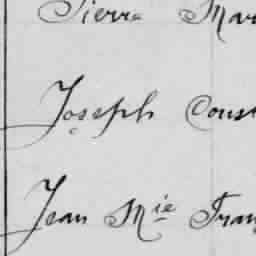 Pierre Mar
Joseph Cons
Jean Mie Fran